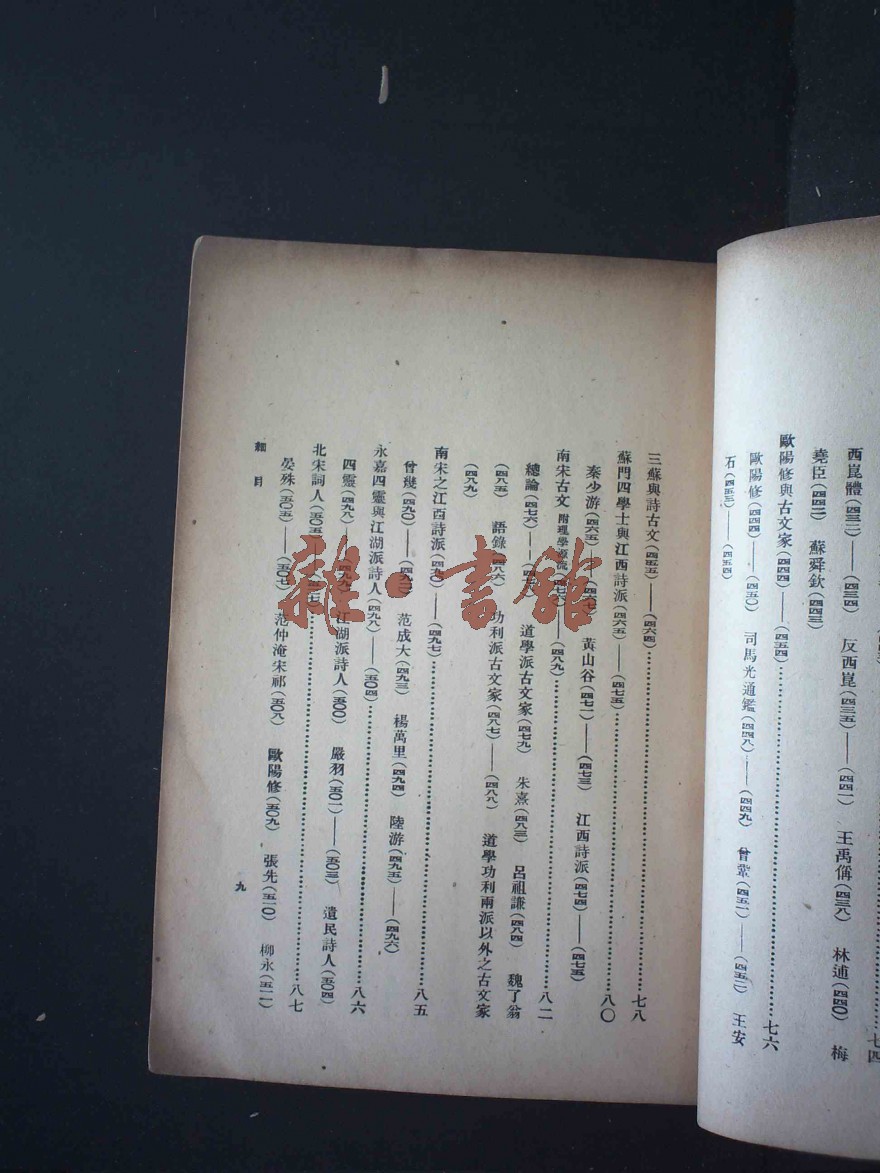 西崑體(四三二)——(四三四) 反西崑(四三五)——(四四一) 王禹偁(四三八) 林逋(四四〇) 梅
堯臣(四四二) 蘇舜欽(四四三)
歐陽修與古文家(四四四)——(四五四)……七六
歐陽修(四四四)——(四五〇) 司馬光通鑑(四四八)——(四四九) 曾鞏(四五一)——(四五二) 王安
石(四五三)——(四五四)
三蘇與詩古文(四五五)——(四六四)……七八
蘇門四學士與江西詩派(四六五)——(四七五)……八〇
秦少游(四六五)——(四六七) 黃山谷(四七一)——(四七三) 江西詩派(四七四)——(四七五)
南宋古文 附理學源流(四七六)——(四八九)……八二
總論(四七六)—— 道學派古文家(四七九) 朱熹(四八三) 呂祖謙(四八四) 魏了翁
(四八五) 語錄(四八六) 功利派古文家(四八七)——(四八八) 道學功利兩派以外之古文家
(四八九)
南宋之江西詩派(四九〇)——(四九七)……八五
曾幾(四九〇)——(四九二) 范成大(四九三) 楊萬里(四九四) 陸游(四九五)——(四九六)
永嘉四靈與江湖派詩人(四九八)——(五〇四)……八六
四靈(四九八)——(四九九) 江湖派詩人(五〇〇) 嚴羽(五〇一)——(五〇三) 遺民詩人(五〇四)
北宋詞人(五〇五)——……八七
晏殊(五〇五)——(五〇七) 范仲淹宋祁(五〇八) 歐陽修(五〇九) 張先(五一〇) 柳永(五一一)
細目
九
雜·書館